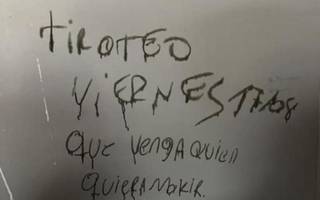 TIROTEO
VIERNES 17/08
QUE VENGA QUIEN
QUIERA MORIR.